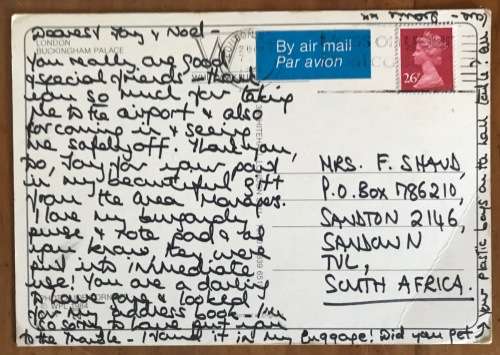 Dearest Fay & Noel -
LONDON
BUCKINGHAM PALACE
You really are good
& special friends - Thank
you so much for taking
me to the airport & also
for coming in & seeing
me safely off. Thank you,
too, Fay for your part
in my beautiful gift
from the Area Managers.
I love my burgundy
purse & note pad & as
you know, they were
put into immediate
use! You are a darling
to have gone & looked
for my address book - I'm
so sorry to have put you
to the trouble - I found it in my luggage! Did you get
your plastic bags on the hall table?
By air mail
Par avion
26
MRS. F. SHAUD,
P.O. BOX 786210,
SANDTON 2146,
SANDOWN
TVL,
SOUTH AFRICA.